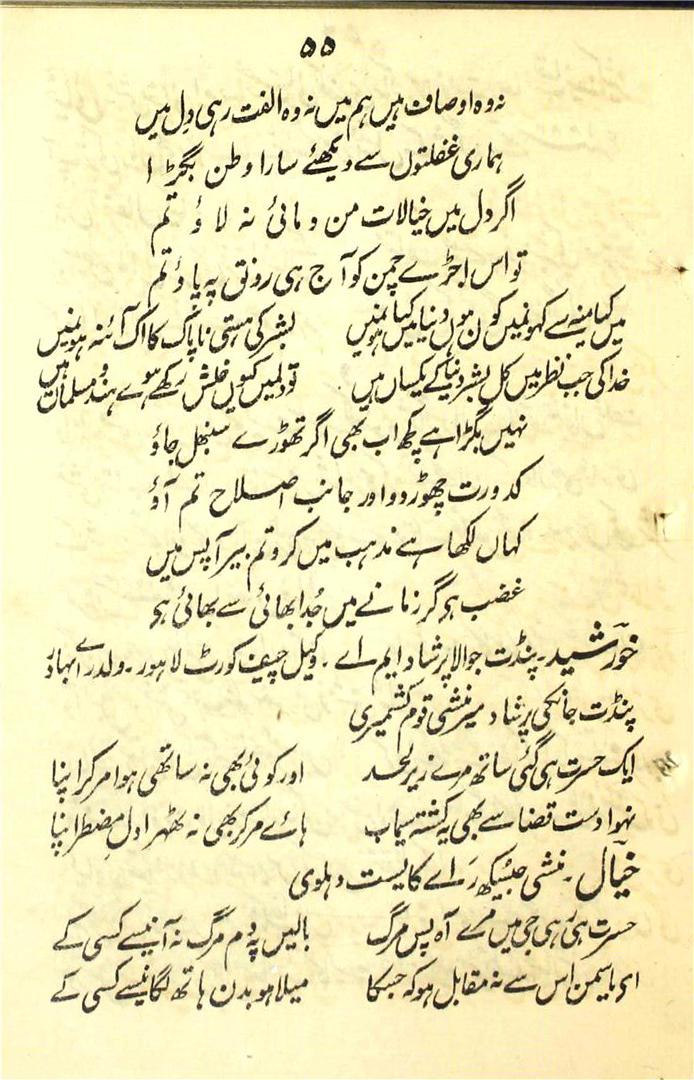 ۵۵
نہ وہ اوصاف ہیں ہم میں نہ وہ الفت رہی دل میں
ہماری غفلتوں سے دیکھئے سارا وطن بگڑا
اگر دل میں خیالات من و مائی نہ لاؤ تم
تو اس اجڑے چمن کو آج ہی رونق پہ پاؤ تم
میں کیا منہ سے کہوں میں کون ہوں دنیا میں کیا ہوں میں بشر کی ہستی ناپاک کا اک آئنہ ہوں میں
خدا کی جب نظر میں کل بشر دنیا کے یکساں ہیں تو دلمیں کیوں خلش رکھے ہوے ہندو مسلماں ہیں
نہیں بگڑا ہے کچھ اب بھی اگر تھوڑے سنبھل جاؤ
کدورت چھوڑ دو اور جانب اصلاح تم آؤ
کہاں لکھا ہے مذہب میں کرو تم بیر آپس میں
غضب ہو گر زمانے میں جُدا بھائی سے بھائی ہو
خورشید۔ پنڈت جوالا پرشاد ایم اے ۔ وکیل چیف کورٹ لاہور ۔ ولد راے بہادر
پنڈت جانکی پرشاد میر منشی قوم کشمیری
ایک حسرت ہی گئی ساتھ مرے زیر لحد اور کوئی بھی نہ ساتھی ہوا مر کر اپنا
نہوا دست قضا سے بھی یہ کشتہ سیماب ہاے مر کر بھی نہ ٹھہرا دلِ مضطر اپنا
خیال ۔ منشی راے کایست دہلوی
حسرت ہی رہی جی میں مرے آہ پس مرگ بالیں پہ دم مرگ نہ آنیسے کسی کے
ای یاسمن اس سے نہ مقابل ہو کہ جسکا میلا ہو بدن ہاتھ لگانیسے کسی کے